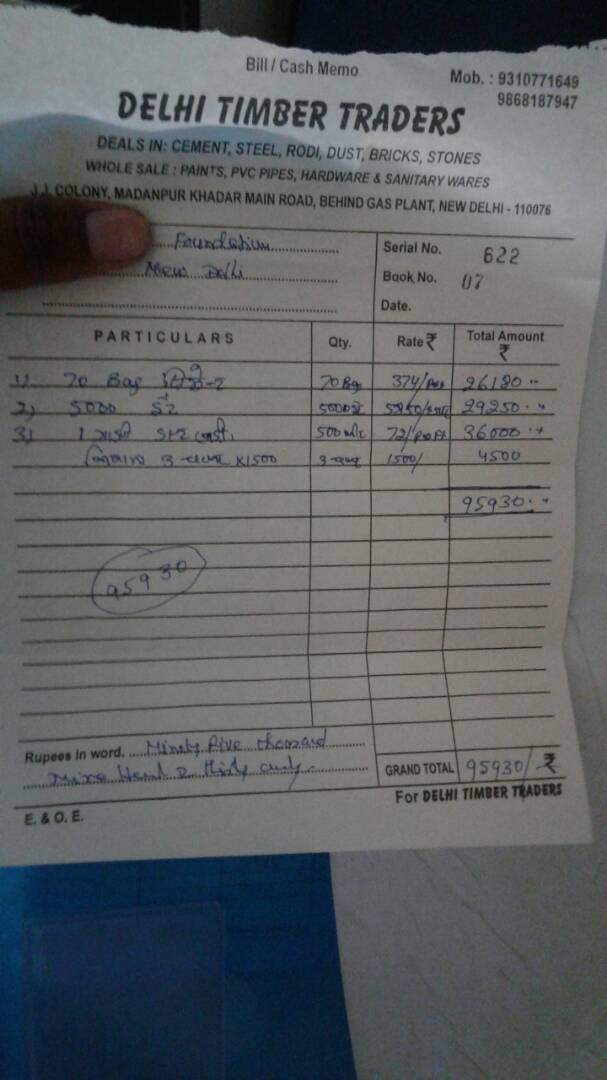 Bill / Cash Memo
Mob. : 9310771649
9868187947
DELHI TIMBER TRADERS
DEALS IN: CEMENT, STEEL, RODI, DUST, BRICKS, STONES
WHOLE SALE : PAINTS, PVC PIPES, HARDWARE & SANITARY WARES
J.J. COLONY, MADANPUR KHADAR MAIN ROAD, BEHIND GAS PLANT, NEW DELHI - 110076
Foundation
New Delhi
Serial No. 622
Book No. 07
Date.
PARTICULARS Qty. Rate ₹ Total Amount ₹
1) 70 Bag 70 Bag 374/ 26180
2) 5000 5000 29250
3) 1 500 72/ 36000
3 x1500 1500/ 4500
95930
95930
Rupees in word. Ninety five thousand
Nine Hund & thirty only.
GRAND TOTAL 95930/ ₹
For DELHI TIMBER TRADERS
E. & O. E.